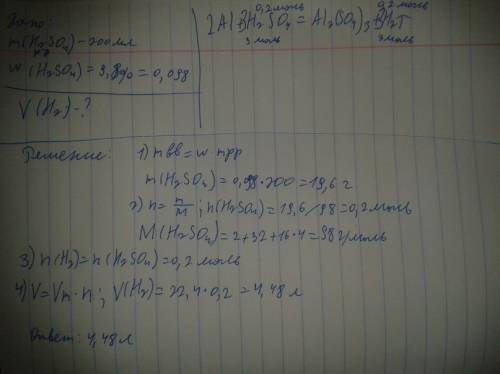 Дано:
m(H₂SO₄) - 200 мл
р-р
w (H₂SO₄) = 9,8% = 0,098
V(H₂) - ?
0,2 моль 0,2 моль
2Al + 3H₂SO₄ = Al₂(SO₄)₃ + 3H₂↑
3 моль 3 моль
Решение: 1) mвв = w mрр
m(H₂SO₄) = 0,98 · 200 = 19,6 г
2) n = m/M ; n(H₂SO₄) = 19,6/98 = 0,2 моль
M(H₂SO₄) = 2+32+16·4 = 98 г/моль
3) n(H₂) = n(H₂SO₄) = 0,2 моль
4) V = Vm · n ; V(H₂) = 22,4 · 0,2 = 4,48 л
Ответ: 4,48 л